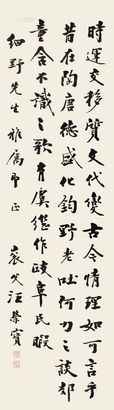 時運交移質文代變古今情理如可言乎
昔在陶唐德盛化鈞野老吐何力之談郊
童含不識之歌有虞繼作政阜民暇
細野先生雅屬即正 袞父汪榮寶